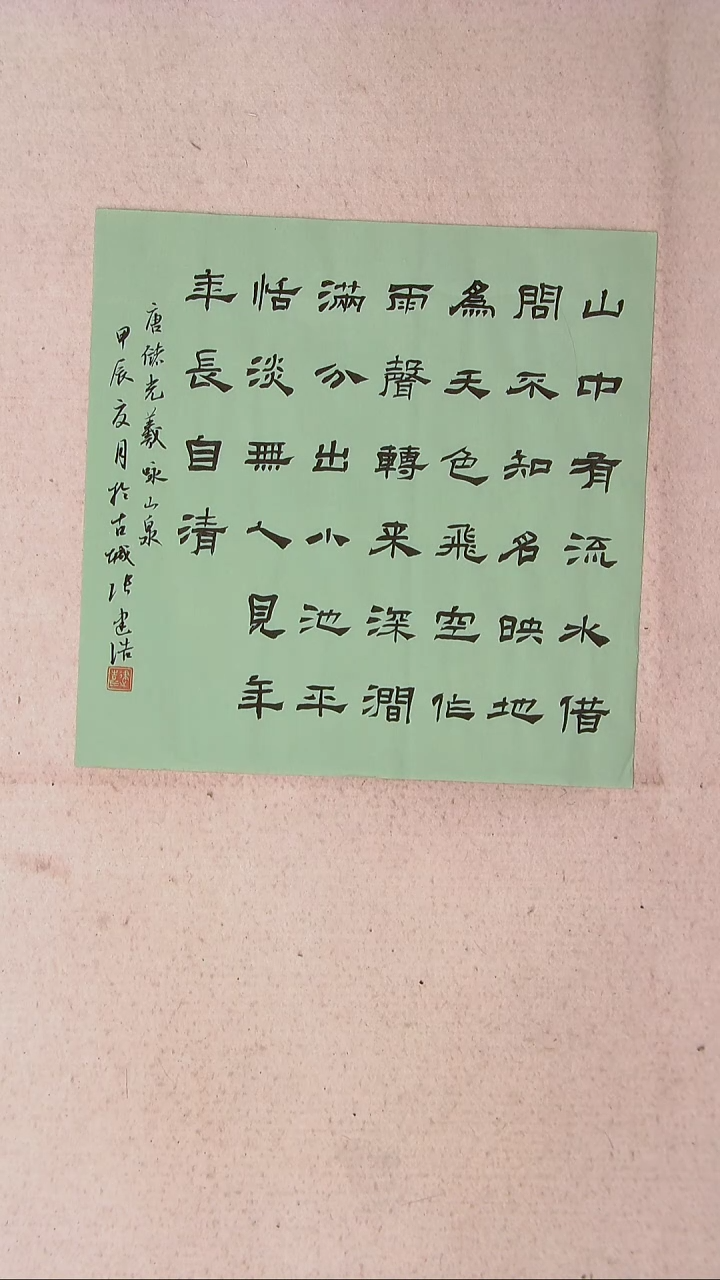 山中有流水借
問不知名映地
為天色飛空作
雨聲轉来深澗
滿分出小池平
恬淡無人見年
年長自清
唐儲光羲咏山泉
甲辰夏月於古城張建浩